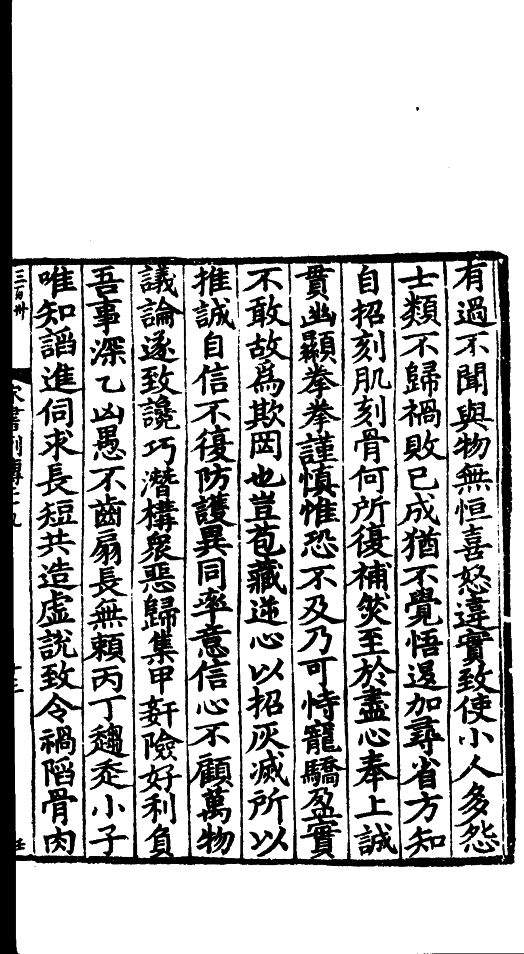 有過不聞與物無恒喜怒違實致使小人多怨
士類不歸禍敗已成猶不覺悟退加尋省方知
自招刻肌刻骨何所復補然至於盡心奉上誠
貫幽顯拳拳謹慎惟恐不及乃可恃寵驕盈實
不敢故爲欺罔也豈苞藏逆心以招灰滅所以
推誠自信不復防護異同率意信心不顧萬物
議論遂致讒巧潛構衆惡歸集甲姧險好利負
吾事深乙凶愚不齒扇長無頼丙丁趨走小子
唯知諂進伺求長短共造虛說致令禍陷骨肉
三百卅
宋書列傳二十九
十三